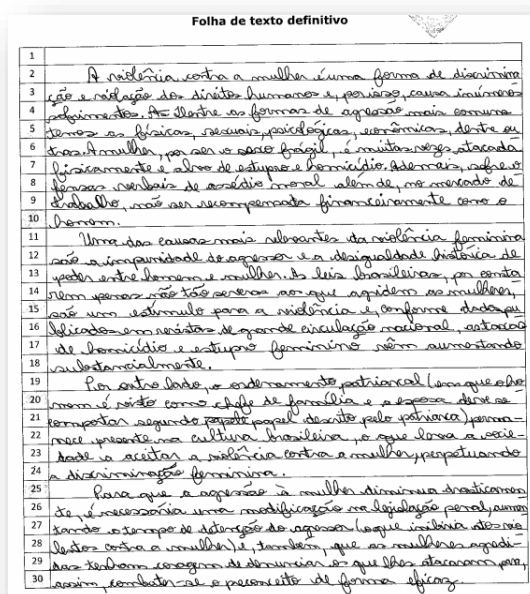 Folha de texto definitivo
1
2 A violência contra a mulher é uma forma de discrimina
3 ção e violação dos direitos humanos e, por isso, causa inúmeros
4 sofrimentos. Dentre as formas de agressão mais comuns
5 temos as físicas, sexuais, psicológicas, econômicas, dentre ou
6 tras. A mulher, por ser o sexo frágil, é muitas vezes atacada
7 fisicamente e alvo de estupro e homicídio. Ademais, sofre o
8 fensas verbais de assédio moral além de, no mercado de
9 trabalho, não ser recompensada financeiramente como o
10 homem.
11 Uma das causas mais relevantes da violência feminina
12 são a impunidade do agressor e a desigualdade histórica de
13 poder entre homem e mulher. As leis brasileiras, por conta
14 rem penas não tão severas aos que agridem as mulheres,
15 são um estímulo para a violência e, conforme dados pu
16 blicados em revistas de grande circulação nacional, as taxas
17 de homicídio e estupro feminino vêm aumentando
18 substancialmente.
19 Por outro lado, o ordenamento patriarcal (em que o ho
20 mem é visto como chefe de família e a esposa deve se
21 comportar segundo papel descrito pelo patriarca) perma
22 nece presente na cultura brasileira, o que leva a socie
23 dade a aceitar a violência contra a mulher, perpetuando
24 a discriminação feminina.
25 Para que a agressão à mulher diminua drasticamen
26 te, é necessária uma modificação na legislação penal, aumen
27 tando o tempo de detenção do agressor (o que inibiria atos vio
28 lentos contra a mulher) e, também, que as mulheres agredi
29 das tenham coragem de denunciar os que lhes atacaram para,
30 assim, combater-se o preconceito de forma eficaz.